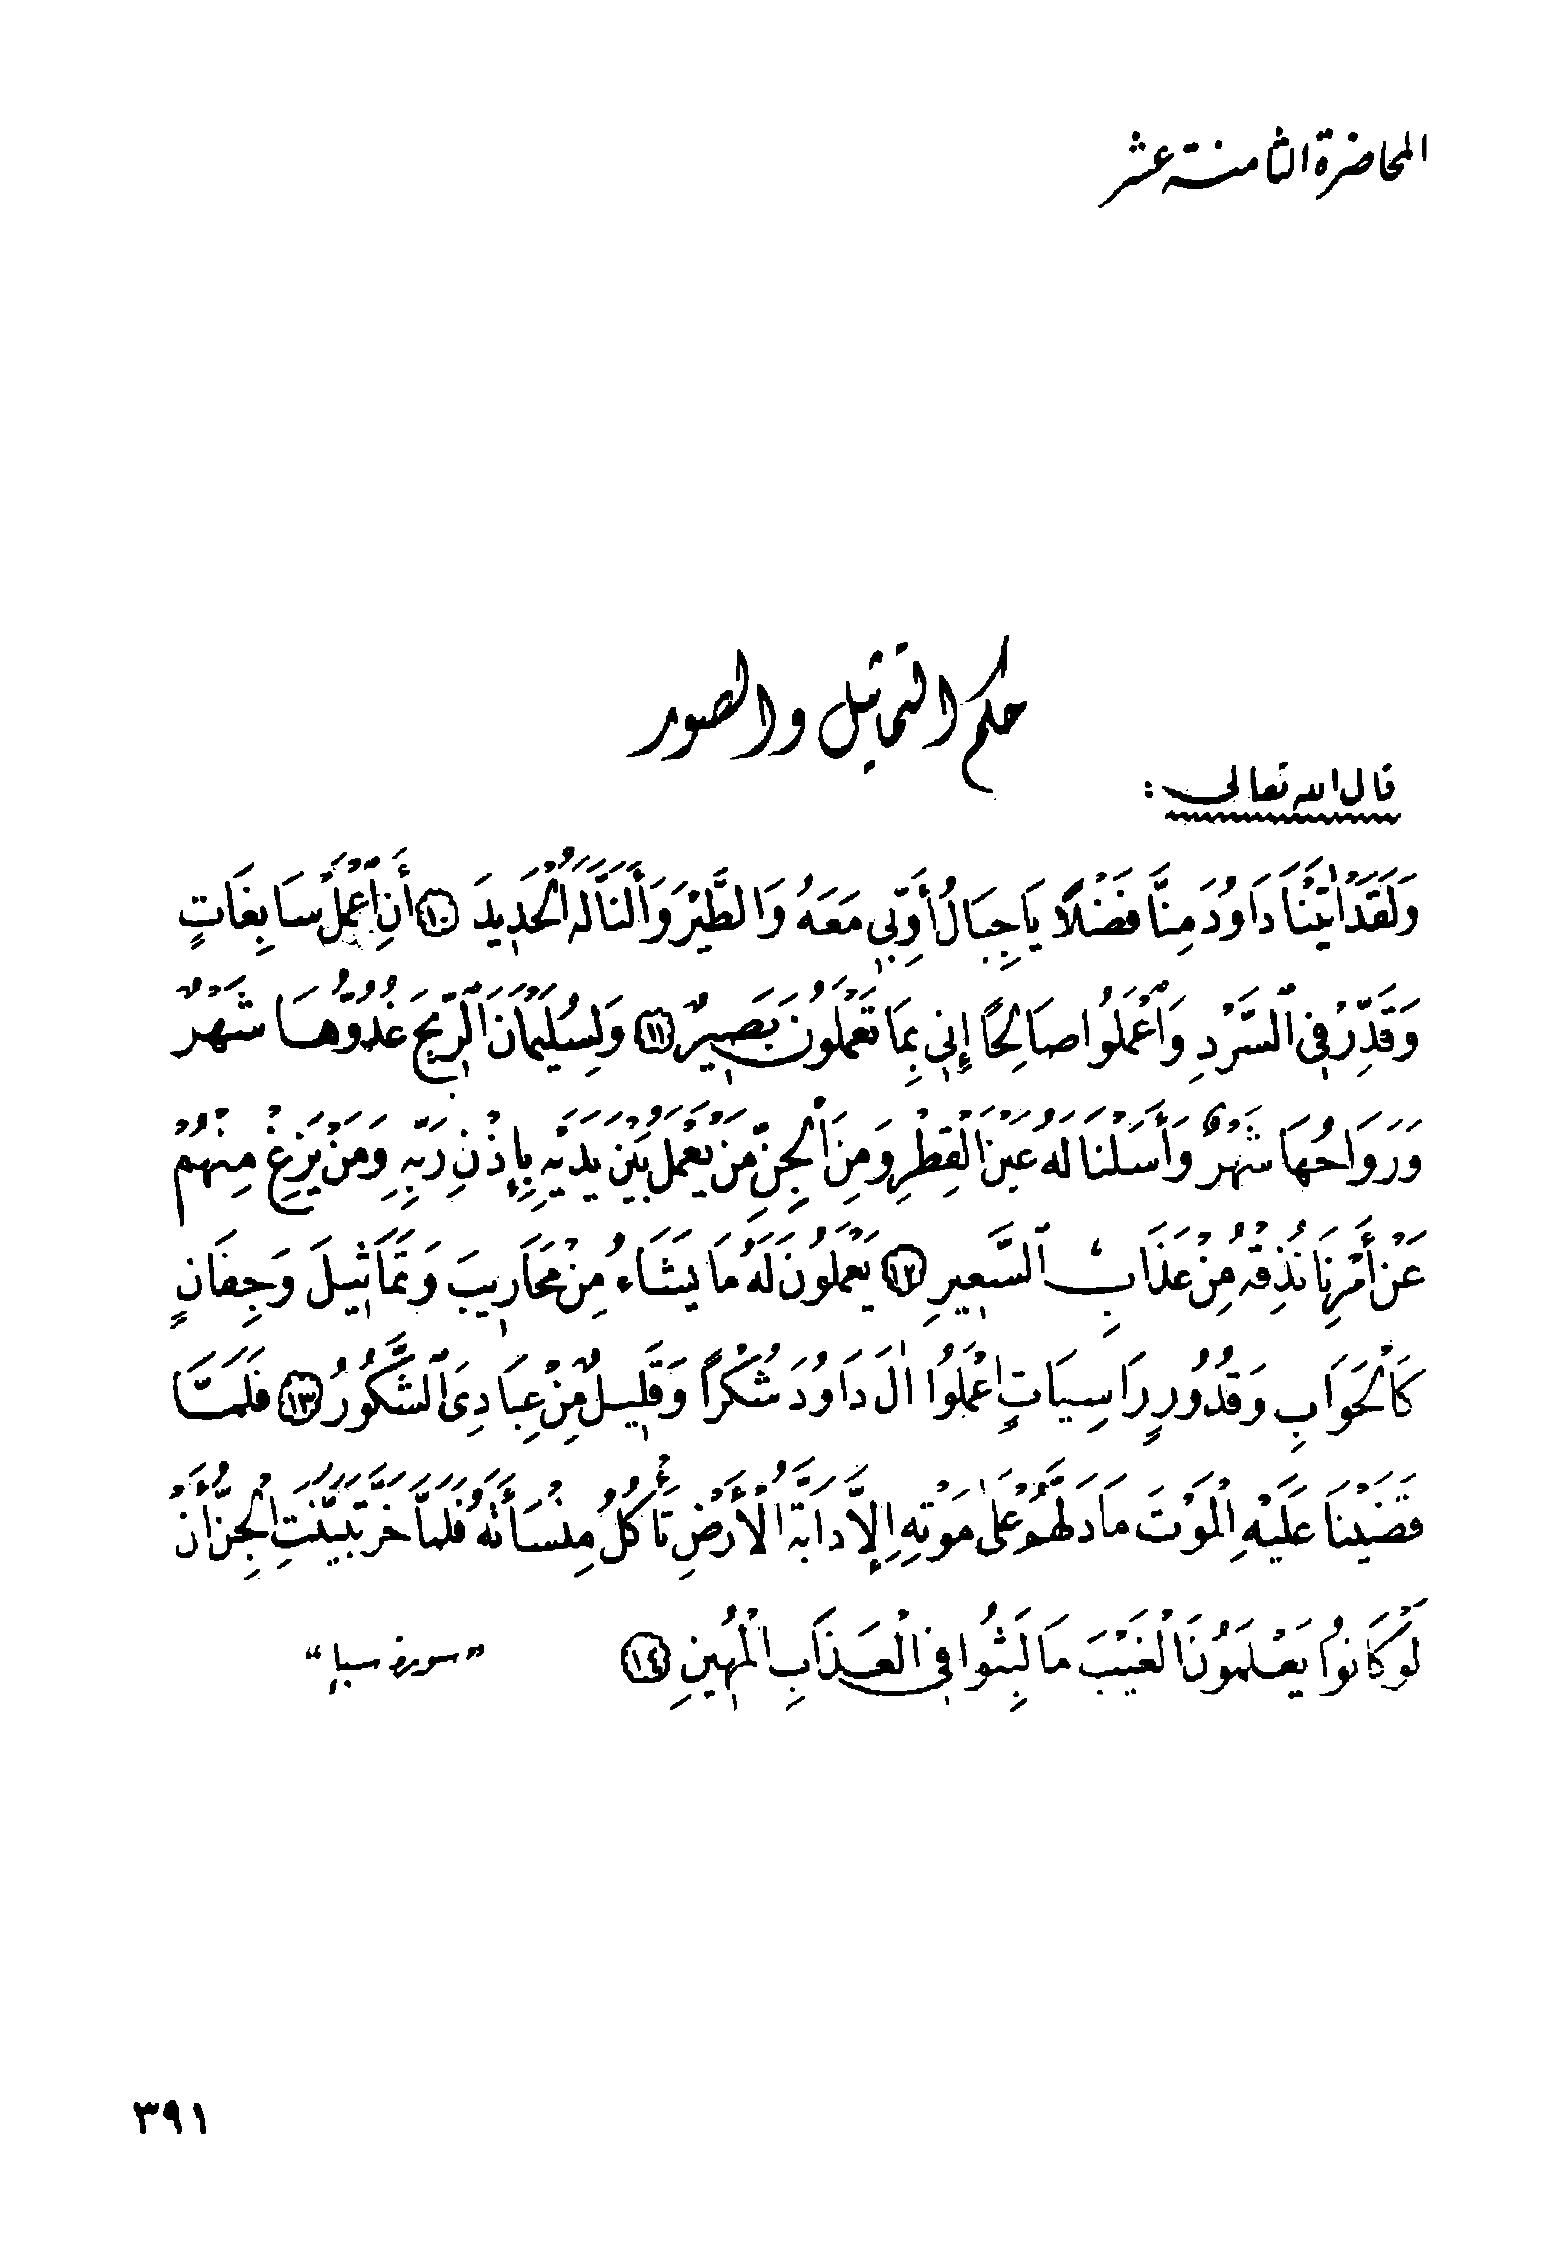 المحاضرة الثامنة عشر
حكم التماثيل والصور
قال الله تعالى :
وَلَقَدْ اٰتَيْنَا دَاوُدَ مِنَّا فَضْلًا يَا جِبَالُ أَوِّبِي مَعَهُ وَالطَّيْرَ وَأَلَنَّا لَهُ الْحَدِيدَ ﴿١٠﴾ أَنِ ٱعْمَلْ سَابِغَاتٍ
وَقَدِّرْ فِي ٱلسَّرْدِ وَٱعْمَلُوا صَالِحًا إِنِّي بِمَا تَعْمَلُونَ بَصِيرٌ ﴿١١﴾ وَلِسُلَيْمَانَ ٱلرِّيحَ غُدُوُّهَا شَهْرٌ
وَرَوَاحُهَا شَهْرٌ وَأَسَلْنَا لَهُ عَيْنَ الْقِطْرِ وَمِنَ ٱلْجِنِّ مَنْ يَعْمَلُ بَيْنَ يَدَيْهِ بِإِذْنِ رَبِّهِ وَمَنْ يَزِغْ مِنْهُمْ
عَنْ أَمْرِنَا نُذِقْهُ مِنْ عَذَابِ ٱلسَّعِيرِ ﴿١٢﴾ يَعْمَلُونَ لَهُ مَا يَشَاءُ مِنْ مَحَارِيبَ وَتَمَاثِيلَ وَجِفَانٍ
كَالْجَوَابِ وَقُدُورٍ رَاسِيَاتٍ اعْمَلُوا اٰلَ دَاوُدَ شُكْرًا وَقَلِيلٌ مِنْ عِبَادِيَ ٱلشَّكُورُ ﴿١٣﴾ فَلَمَّا
قَضَيْنَا عَلَيْهِ الْمَوْتَ مَا دَلَّهُمْ عَلَىٰ مَوْتِهِ إِلَّا دَابَّةُ الْأَرْضِ تَأْكُلُ مِنْسَأَتَهُ فَلَمَّا خَرَّ تَبَيَّنَتِ الْجِنُّ أَنْ
لَوْ كَانُوا يَعْلَمُونَ الْغَيْبَ مَا لَبِثُوا فِي الْعَذَابِ الْمُهِينِ ﴿١٤﴾ "سورة سبإ"
٣٩١